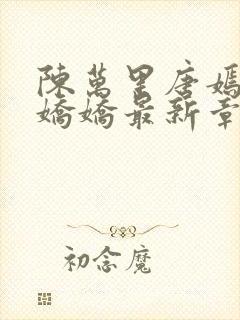 陳萬里唐嫣
嬌嬌最新章
初念魔